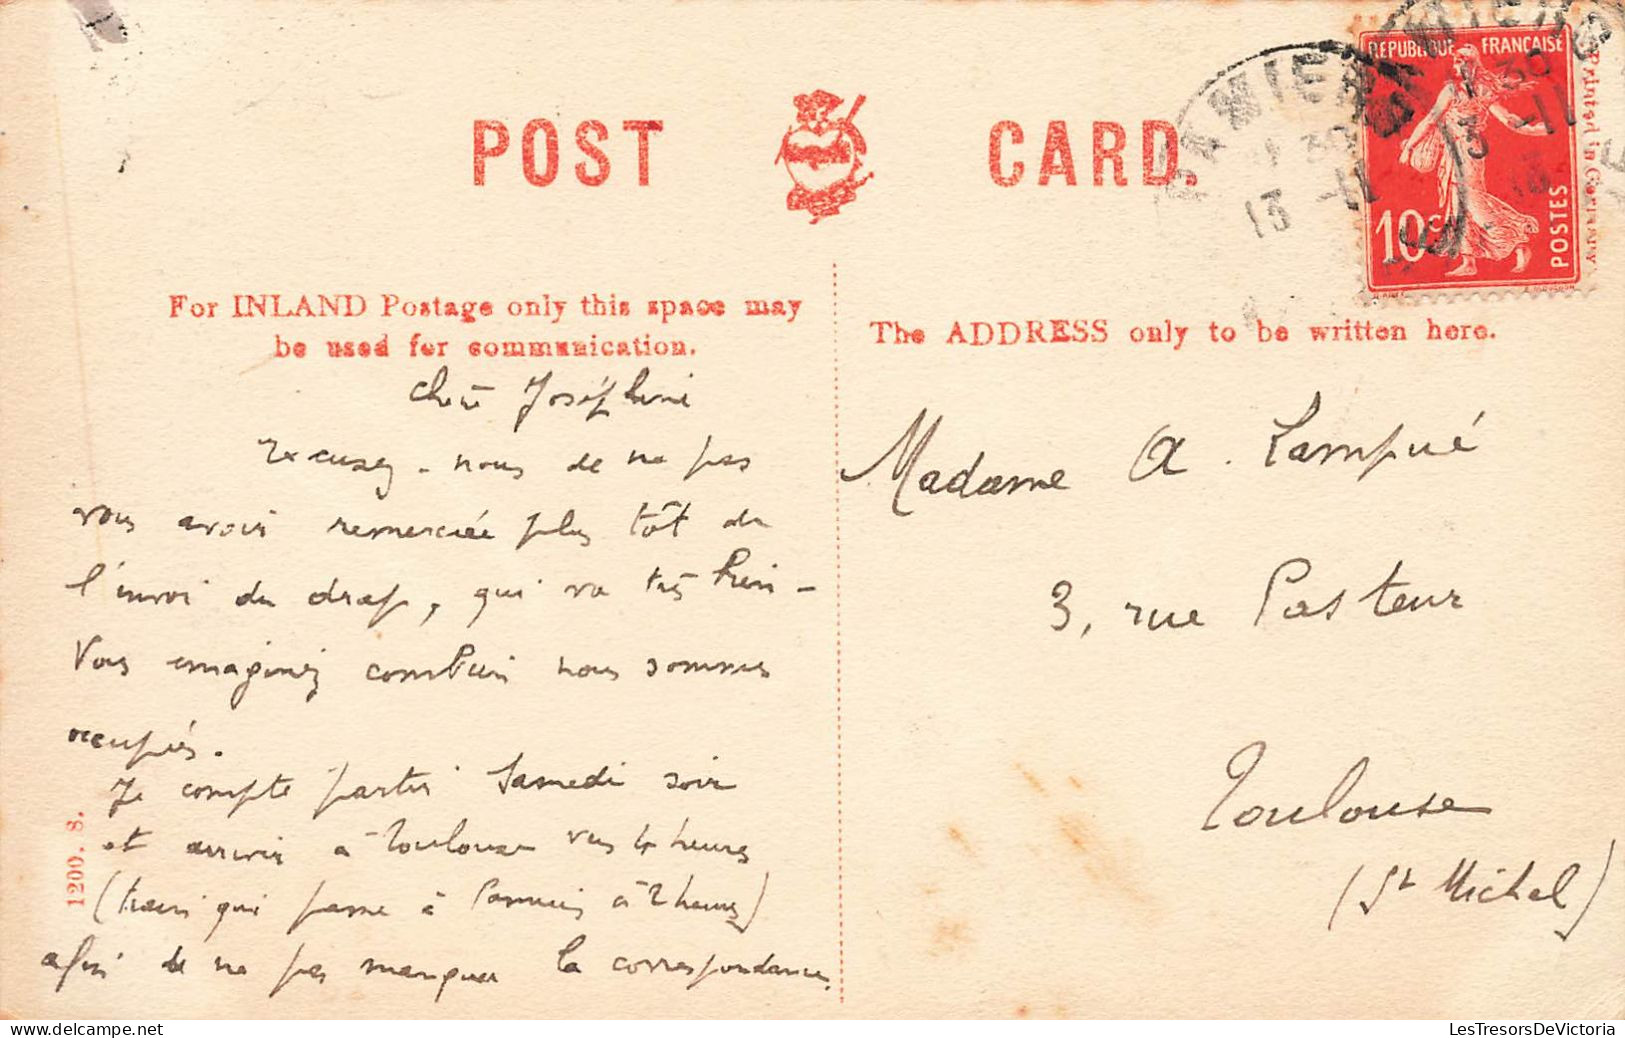 POST CARD.
REPUBLIQUE FRANÇAISE
10c
POSTES
Printed in Germany
PAMIERS
11 30
13 -11
For INLAND Postage only this space may
be used for communication.
The ADDRESS only to be written here.
Chère Joséphine
Excusez-nous de ne pas
vous avoir remerciée plus tôt de
l'envoi du drap, qui va très bien -
Vous imaginez combien nous sommes
occupés.
Je compte partir Samedi soir
et arriver à Toulouse vers 4 heures
(train qui passe à Pamiers à 2 heures)
afin de ne pas manquer la correspondance.
1200. S.
Madame A. Lampué
3, rue Pasteur
Toulouse
(St Michel)
LesTresorsDeVictoria
delcampe.net